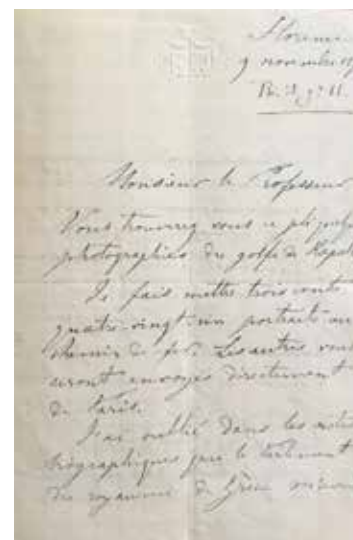 Florence
9 novembre
Monsieur le Professeur
Vous trouverez sous ce pli quelq
photographies du golfe de Napl
Je fais mettre trois cents
quatre-vingt-un portraits au
chemin de fer. Les autres vous
seront envoyés directement
de Paris.
J'ai oublié dans les notes
biographiques que le
du royaume de Grèce